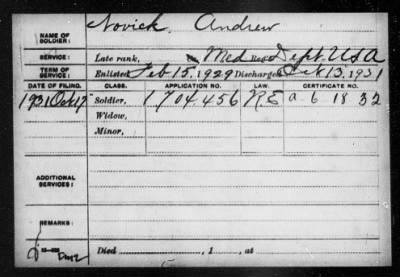 NAME OF SOLDIER: Novick, Andrew
SERVICE: Late rank, Med Reg Dept. U S A
TERM OF SERVICE: Enlisted Feb 15, 1929 Discharged Oct 13, 1931
DATE OF FILING. CLASS. APPLICATION NO. LAW. CERTIFICATE NO.
1931 Oct 17 Soldier, 1704.456 R.E a 6 18 32
Widow,
Minor,
ADDITIONAL SERVICES:
REMARKS:
Died , 1 , at